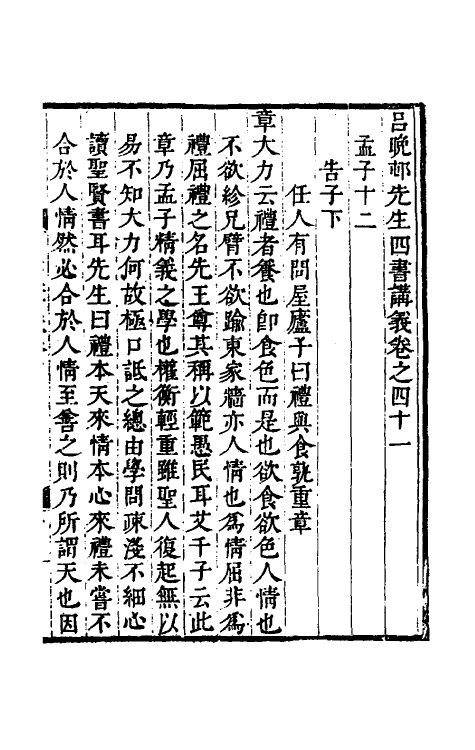 呂晚邨先生四書講義卷之四十一
孟子十二
告子下
任人有問屋廬子曰禮與食孰重章
章大力云禮者養也卽食色而是也欲食欲色人情也
不欲紾兄臂不欲踰東家牆亦人情也爲情屈非爲
禮屈禮之名先王尊其稱以範愚民耳艾千子云此
章乃孟子精義之學也權衡輕重雖聖人復起無以
易不知大力何故極口詆之總由學問疎淺不細心
讀聖賢書耳先生曰禮本天來情本心來禮未嘗不
合於人情然必合於人情至善之則乃所謂天也因